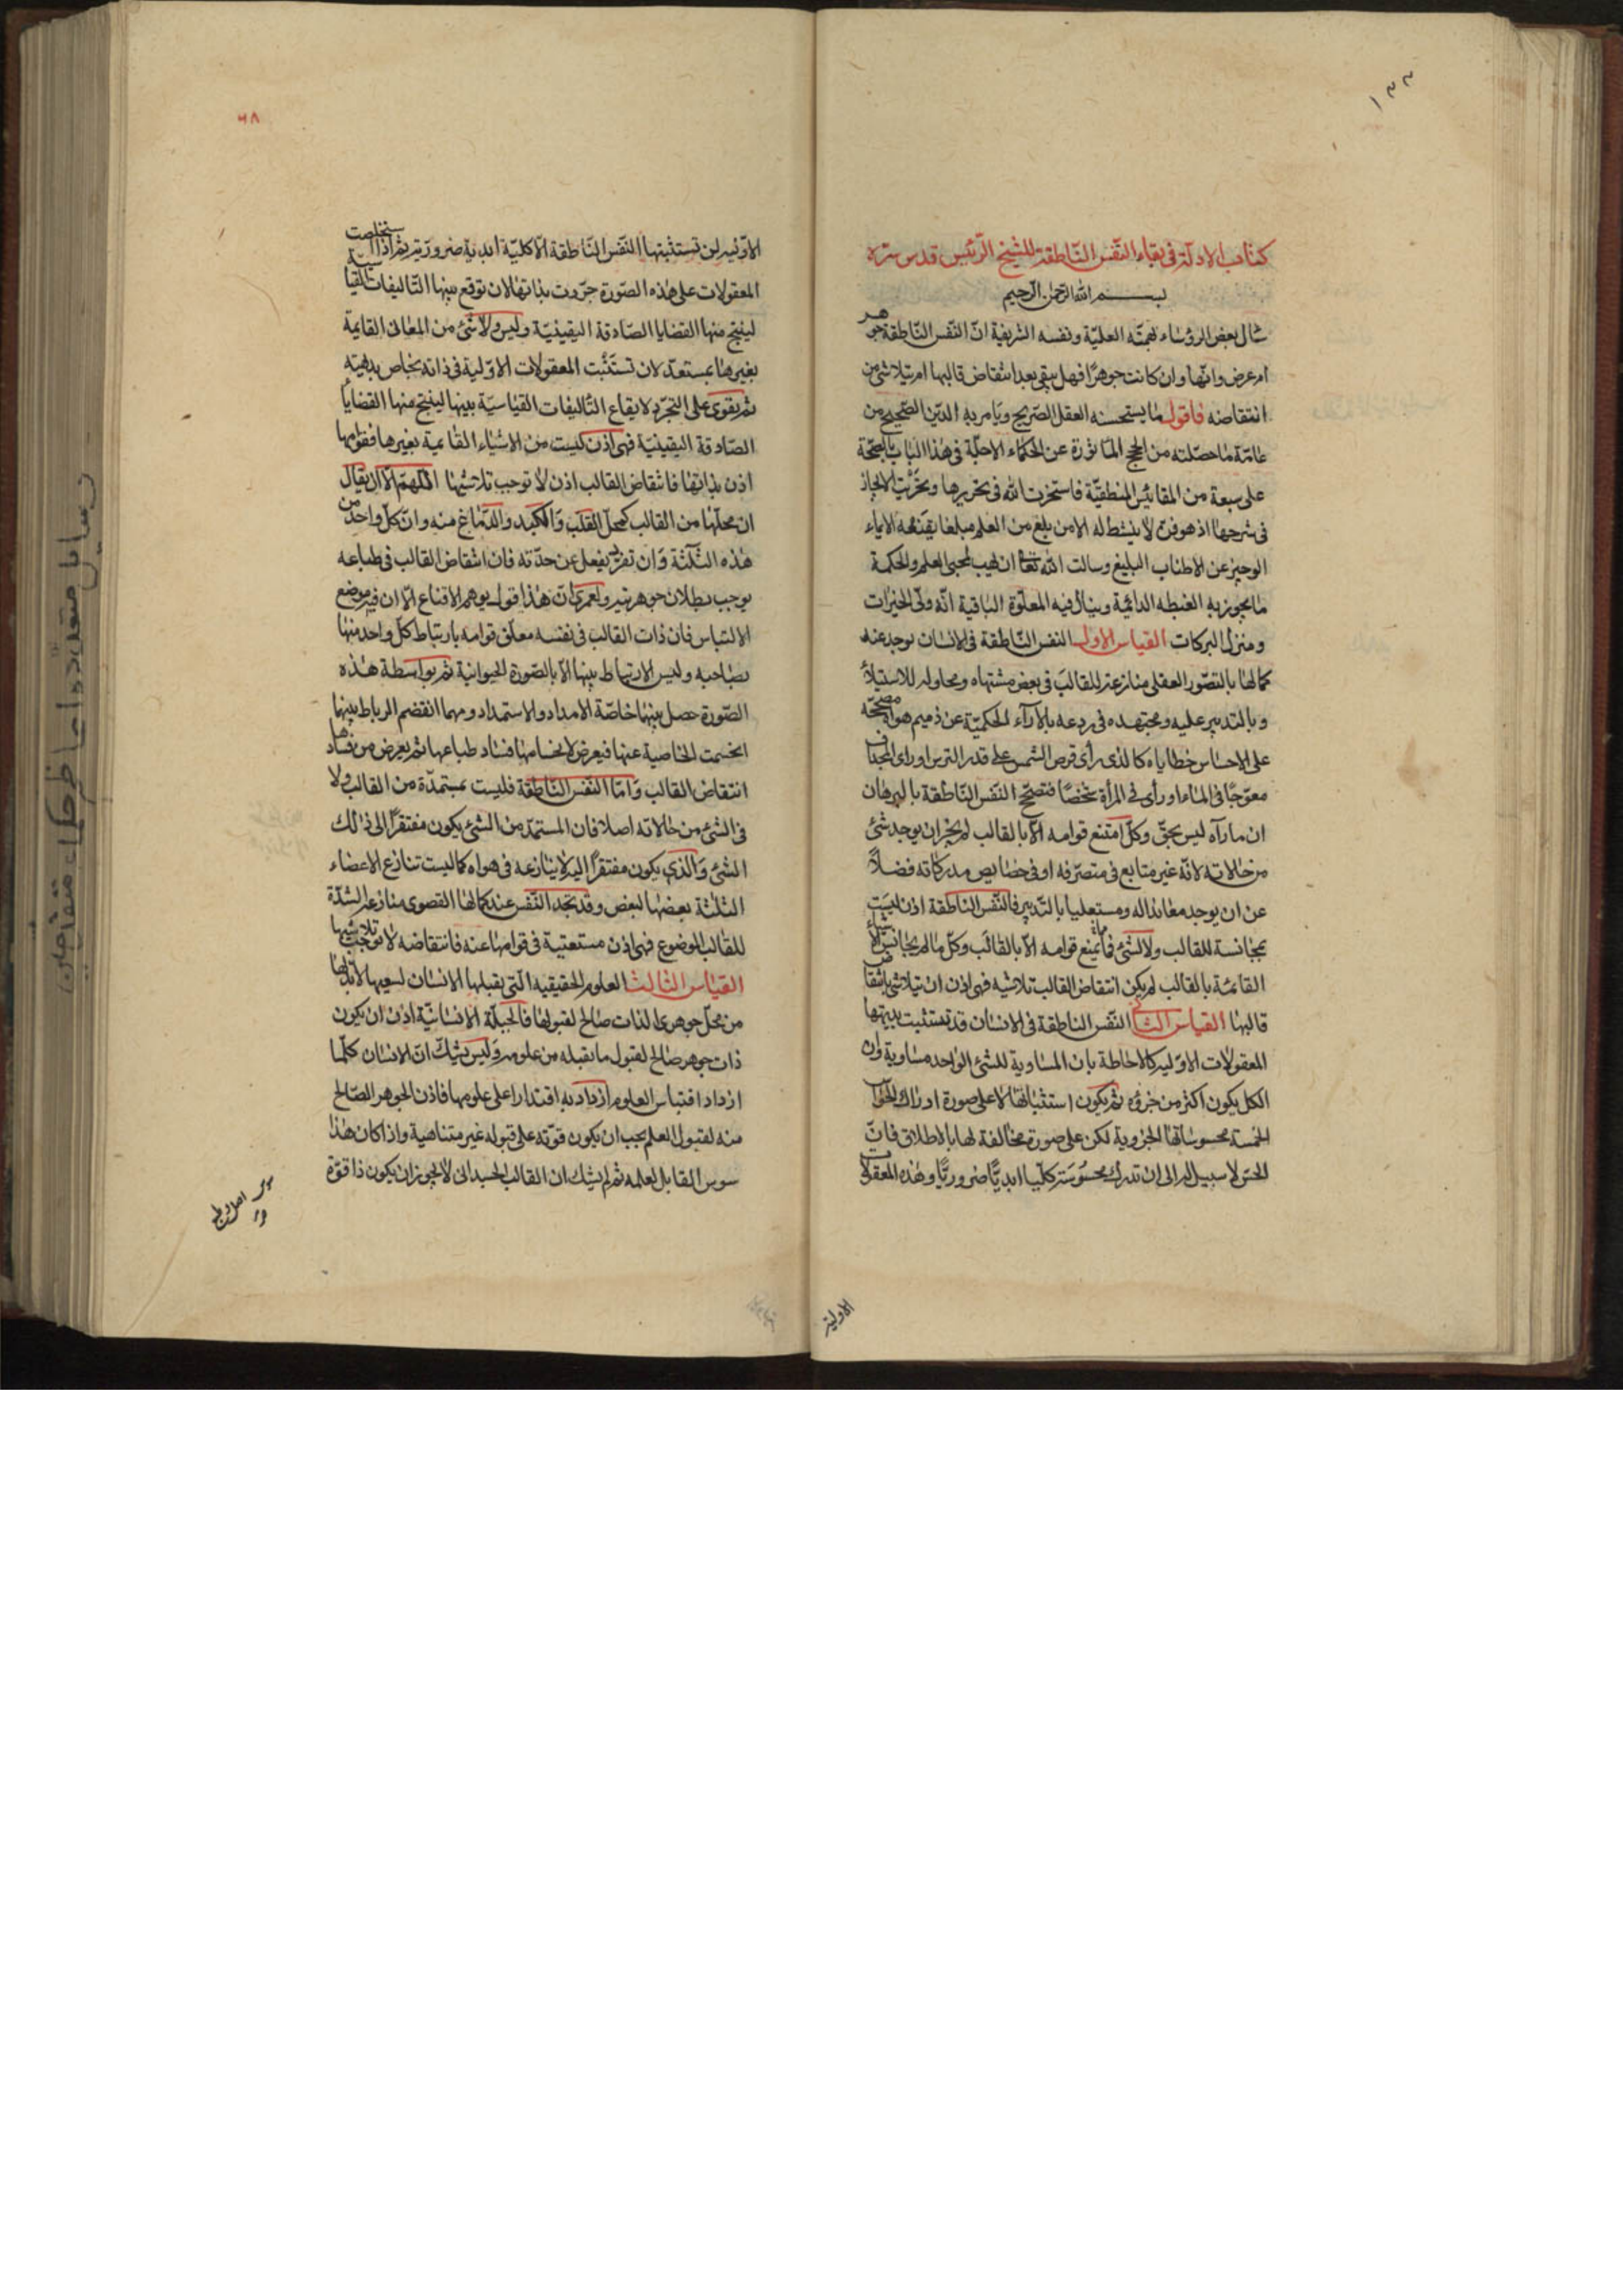 ١٣٣
كتاب الادلة فى بقاء النّفس النّاطقة للشيخ الرّئيس قدس سرّه
بسم الله الرحمن الرحيم
سال بعض الرؤساء بهمته العليّة ونفسه الشريفة انّ النّفس النّاطقة جوهر
ام عرض وانّها وان كانت جوهرًا فهل يبقى بعد انتقاض قالبها ام يتلاشى من
انتقاضه فاقول ما يستحسنه العقل الصّريح ويامر به الدّين الصّحيح من
عامّة ما حصّلته من الحجج الماثورة عن الحكماء الاجلّة فى هذا الباب بالصحّة
على سبعة من المقائيس المنطقيّة فاستخرت الله فى تحريرها وتحرّيت الايجاز
فى شرحها اذ هو فنّ لا ينشط له الا من بلغ من العلم مبلغا يقنعه الايماء
الوجيز عن الاطناب البليغ وسالت الله تعا ان يهب لمحبى العلم والحكمة
ما يحوز به الغبطه الدائمية وينال فيه المعلّوة الباقية انّه ولىّ الخيرات
ومنزل البركات القياس الاول النفس النّاطقة فى الانسان يوجد عند
كمالها بالتصّور العقلى منازعة للقالب فى بعض مشتهاه ومحاولة للاستيلاء
وبالتدبير عليه ومجتهده فى ردعه بالآراء الحكميّة عن ذميم هواه مصحّحه
على الاحساس خطاياه كالذى رأى قرص الشمس على قدر الترس او راى المجداف
معوّجًا فى الماء او رأى فى المرآة شخصًا فتصحّح النّفس النّاطقة بالبرهان
ان ما رآه ليس بحقّ وكلّ امتنع قوامه الّا بالقالب لم يجز ان يوجد شئ
من حالاته لانّه غير متابع فى متصرّفه او فى خصايص مدركاته فضلاً
عن ان يوجد معاندا له ومستعليا بالتّدبير فالنّفس الناطقة اذن ليست
بمجانسة للقالب ولا لشئ يمتنع قوامه الّا بالقالب وكلّ ما لم يجانس الاشياء
القائمة بالقالب لم يكن انتقاض القالب تلاشيه فهى اذن ان تلاشى بانتقاض
قالبها القياس الثانى النّفس الناطقة فى الانسان قد تستثبت ببديهتها
المعقولات الاوّلية كالاحاطة بان المساوية للشئ الواحد مساوية وان
الكل يكون اكثر من جزؤه ثم يكون استثباتها لا على صورة ادراك الحواس
الخمسة محسوساتها الجزوية لكن على صورة مخالفة لها بالاطلاق فانّ
الحسّ لا سبيل له الى ان تدرك محسوسة كلّيا ابديًّا ضروريًّا وهذه المعقولات
الاولية
٦٨
الاوّلية لن تستثبتها النّفس النّاطقة الّا كليّة ابدية ضرورّية ثم اذا استخلصت
المعقولات على هذه الصّورة جرّدت بذاتها لان توقع بينها التّاليفات القياسيّة
لينتج منها القضايا الصّادقة اليقينيّة وليس ولا شئ من المعانى القايمة
بغيرها بمستعدّ لان تستثبت المعقولات الاوّلية فى ذاته بخاص بديهيته
ثم يقوى على التجرّد لايقاع التّاليفات القياسيّة بينها لينتج منها القضايا
الصّادقة اليقينيّة فهى اذن ليست من الاشياء القايمة بغيرها فقوامها
اذن بذاتها فانتقاض القالب اذن لا توجب تلاشيها اللّهمّ الّا ان يقال
ان محلّها من القالب كمحلّ القلب والكبد والدّماغ منه وانّ كلّ واحد من
هذه الثّلثة وان تفرّد بفعل عن حدّته فان انتقاض القالب فى طباعه
يوجب بطلان جوهريته ولعمرى انّ هذا قول يوهم الاقناع الّا ان فيه موضع
الالتباس فان ذات القالب فى نفسه معلّق قوامه بارتباط كلّ واحد منها
بصاحبه وليس الارتباط بينها الّا بالصّورة الحيوانية ثم بواسطة هذه
الصّورة حصل بينها خاصّة الامداد والاستمداد ومهما انفصم الرباط بينها
انحسمت الخاصية عنها فيعرض لانحسامها فساد طباعها ثم يعرض من فسادها
انتقاض القالب وامّا النّفس النّاطقة فليست بمستمدّة من القالب ولا
فى الشئ من حالاته اصلا فان المستمدّ من الشئ يكون مفتقرًا الى ذلك
الشئ والذى يكون مفتقرًا اليه لا ينازعه فى هواه كما ليست تنازع الاعضاء
الثلثة بعضها لبعض وقد تجد النّفس عند كمالها القصوى منازعة لشدّة
للقالب الموضوع فهى اذن مستغنية فى قوامها عنه فانتقاضه لا توجب تلاشيها
القياس الثالث العلوم الحقيقيه الّتى يقبلها الانسان لسعيها لا بدّ لها
من محلّ جوهرى الذات صالح لقبولها فالجبلّة الانسانيّة اذن ان يكون
ذات جوهر صالح لقبول ما تقبله من علومه وليس يشكّ انّ الانسان كلّما
ازداد اقتباس العلوم ازداد به اقتدارا على علومها فاذن الجوهر الصّالح
منه لقبول العلم يجب ان يكون قوّته على قبوله غير متناهية واذا كان هذا
سوس القابل لعلمه ثم لم يشك ان القالب الجسدانى لا يجوز ان يكون ذا قوّة
رسايل متعدده از حكماى متقدمين